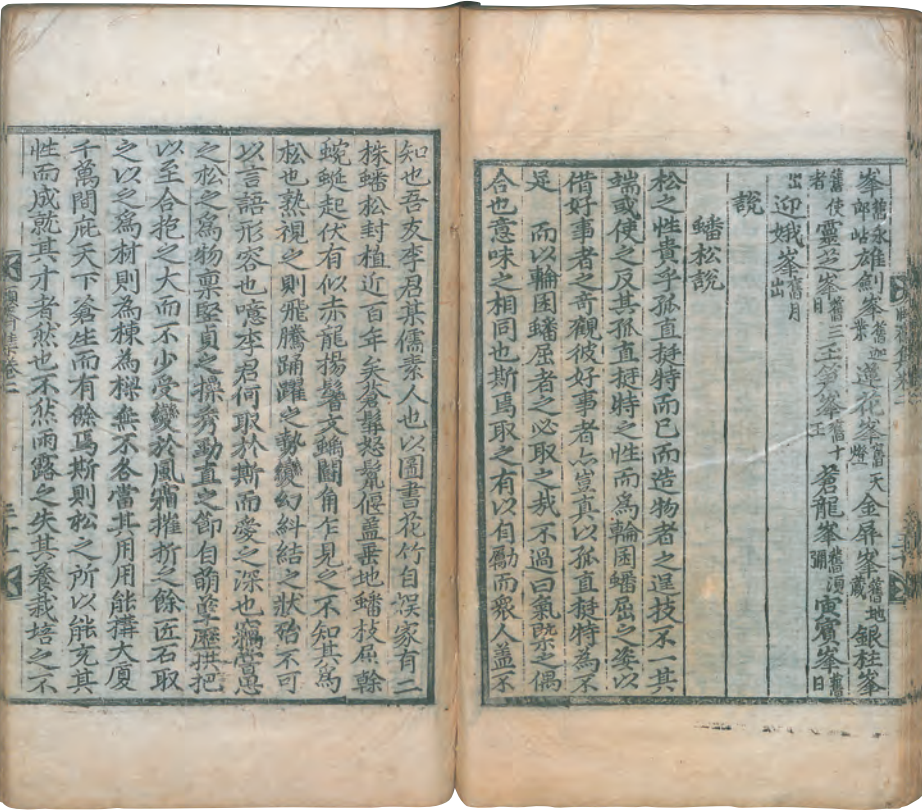 峯舊永郞岾雄劍峯舊迦葉蓮花峯舊燈天金屛峯舊地藏銀柱峯
舊使者靈芝峯舊日三玉筍峯舊十王蒼龍峯舊須彌寅賓峯舊日
出迎娥峯舊月出
說
蟠松說
松之性貴乎孤直挺特而已而造物者之逞技不一其
端或使之反其孤直挺特之性而爲輪囷蟠屈之姿以
借好事者之奇觀彼好事者亦豈真以孤直挺特為不
足而以輪囷蟠屈者之必取之哉不過曰氣槩之偶
合也意味之相同也斯焉取之有以自勵而衆人盖不
知也吾友李君某儒素人也以圖書花竹自娛家有二
株蟠松封植近百年矣蒼髯怒鬣偃盖垂地蟠枝屈幹
蜿蜒起伏有似赤龍揚鬐文螭鬪角乍見之不知其爲
松也熟視之則飛騰踊躍之勢變幻糾結之狀殆不可
以言語形容也噫李君何取於斯而愛之深也竊嘗思
之松之爲物禀堅貞之操秀勁直之節自萌蘖歷拱把
以至合抱之大而不少受變於風霜摧折之餘匠石取
之以之爲材則為棟為樑無不各當其用用能構大廈
千萬間庇天下蒼生而有餘焉斯則松之所以能充其
性而成就其才者然也不然雨露之失其養栽培之不
卷二
三十一